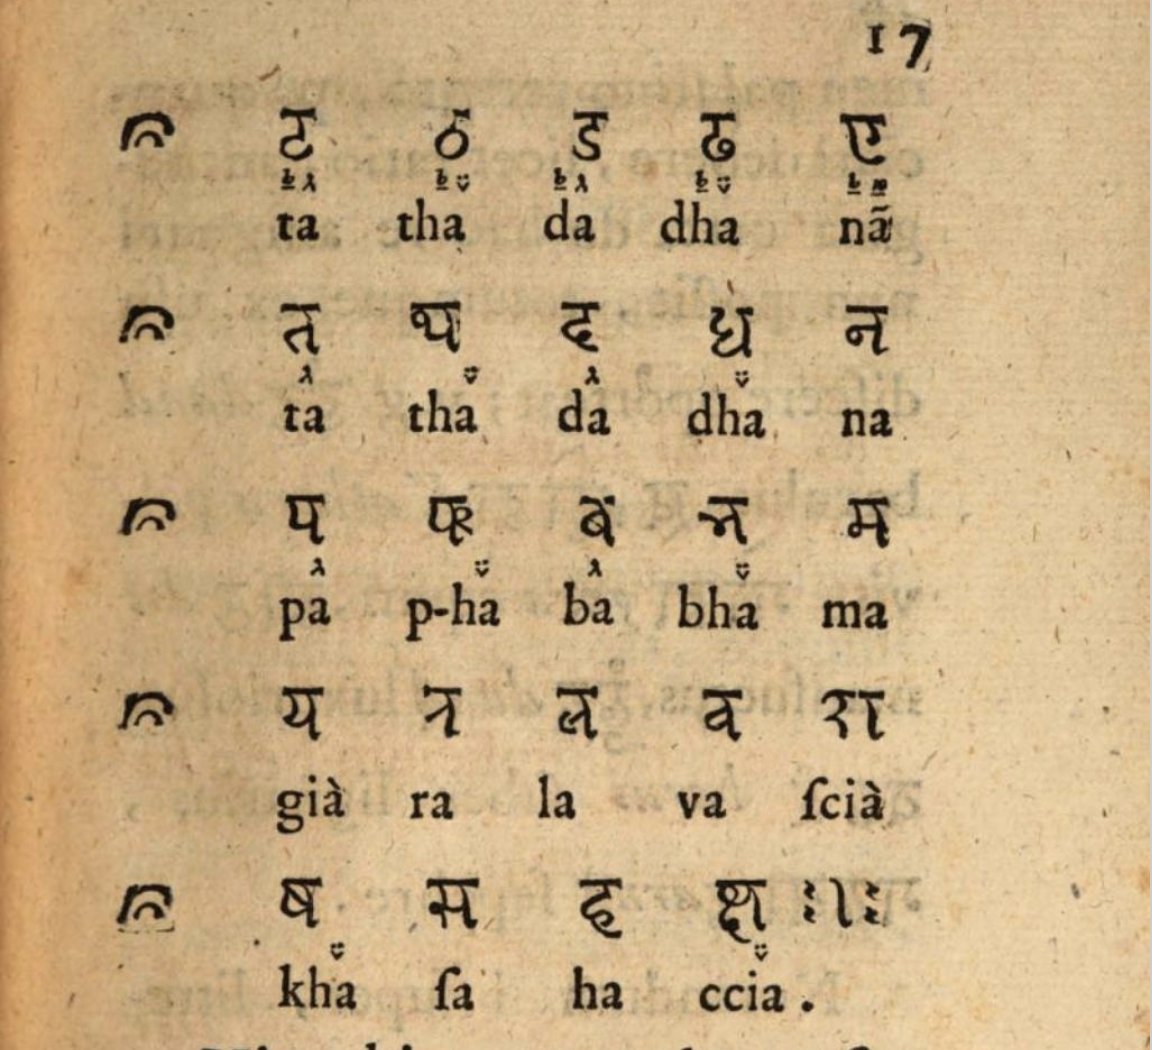 17
ट ठ ड ढ ए
ta tha da dha nã
त थ द ध न
ta tha da dha na
प फ ब भ म
pa p-ha ba bha ma
य र ल व श
già ra la va ſcià
ष स ह क्ष :।:
kha ſa ha ccia .